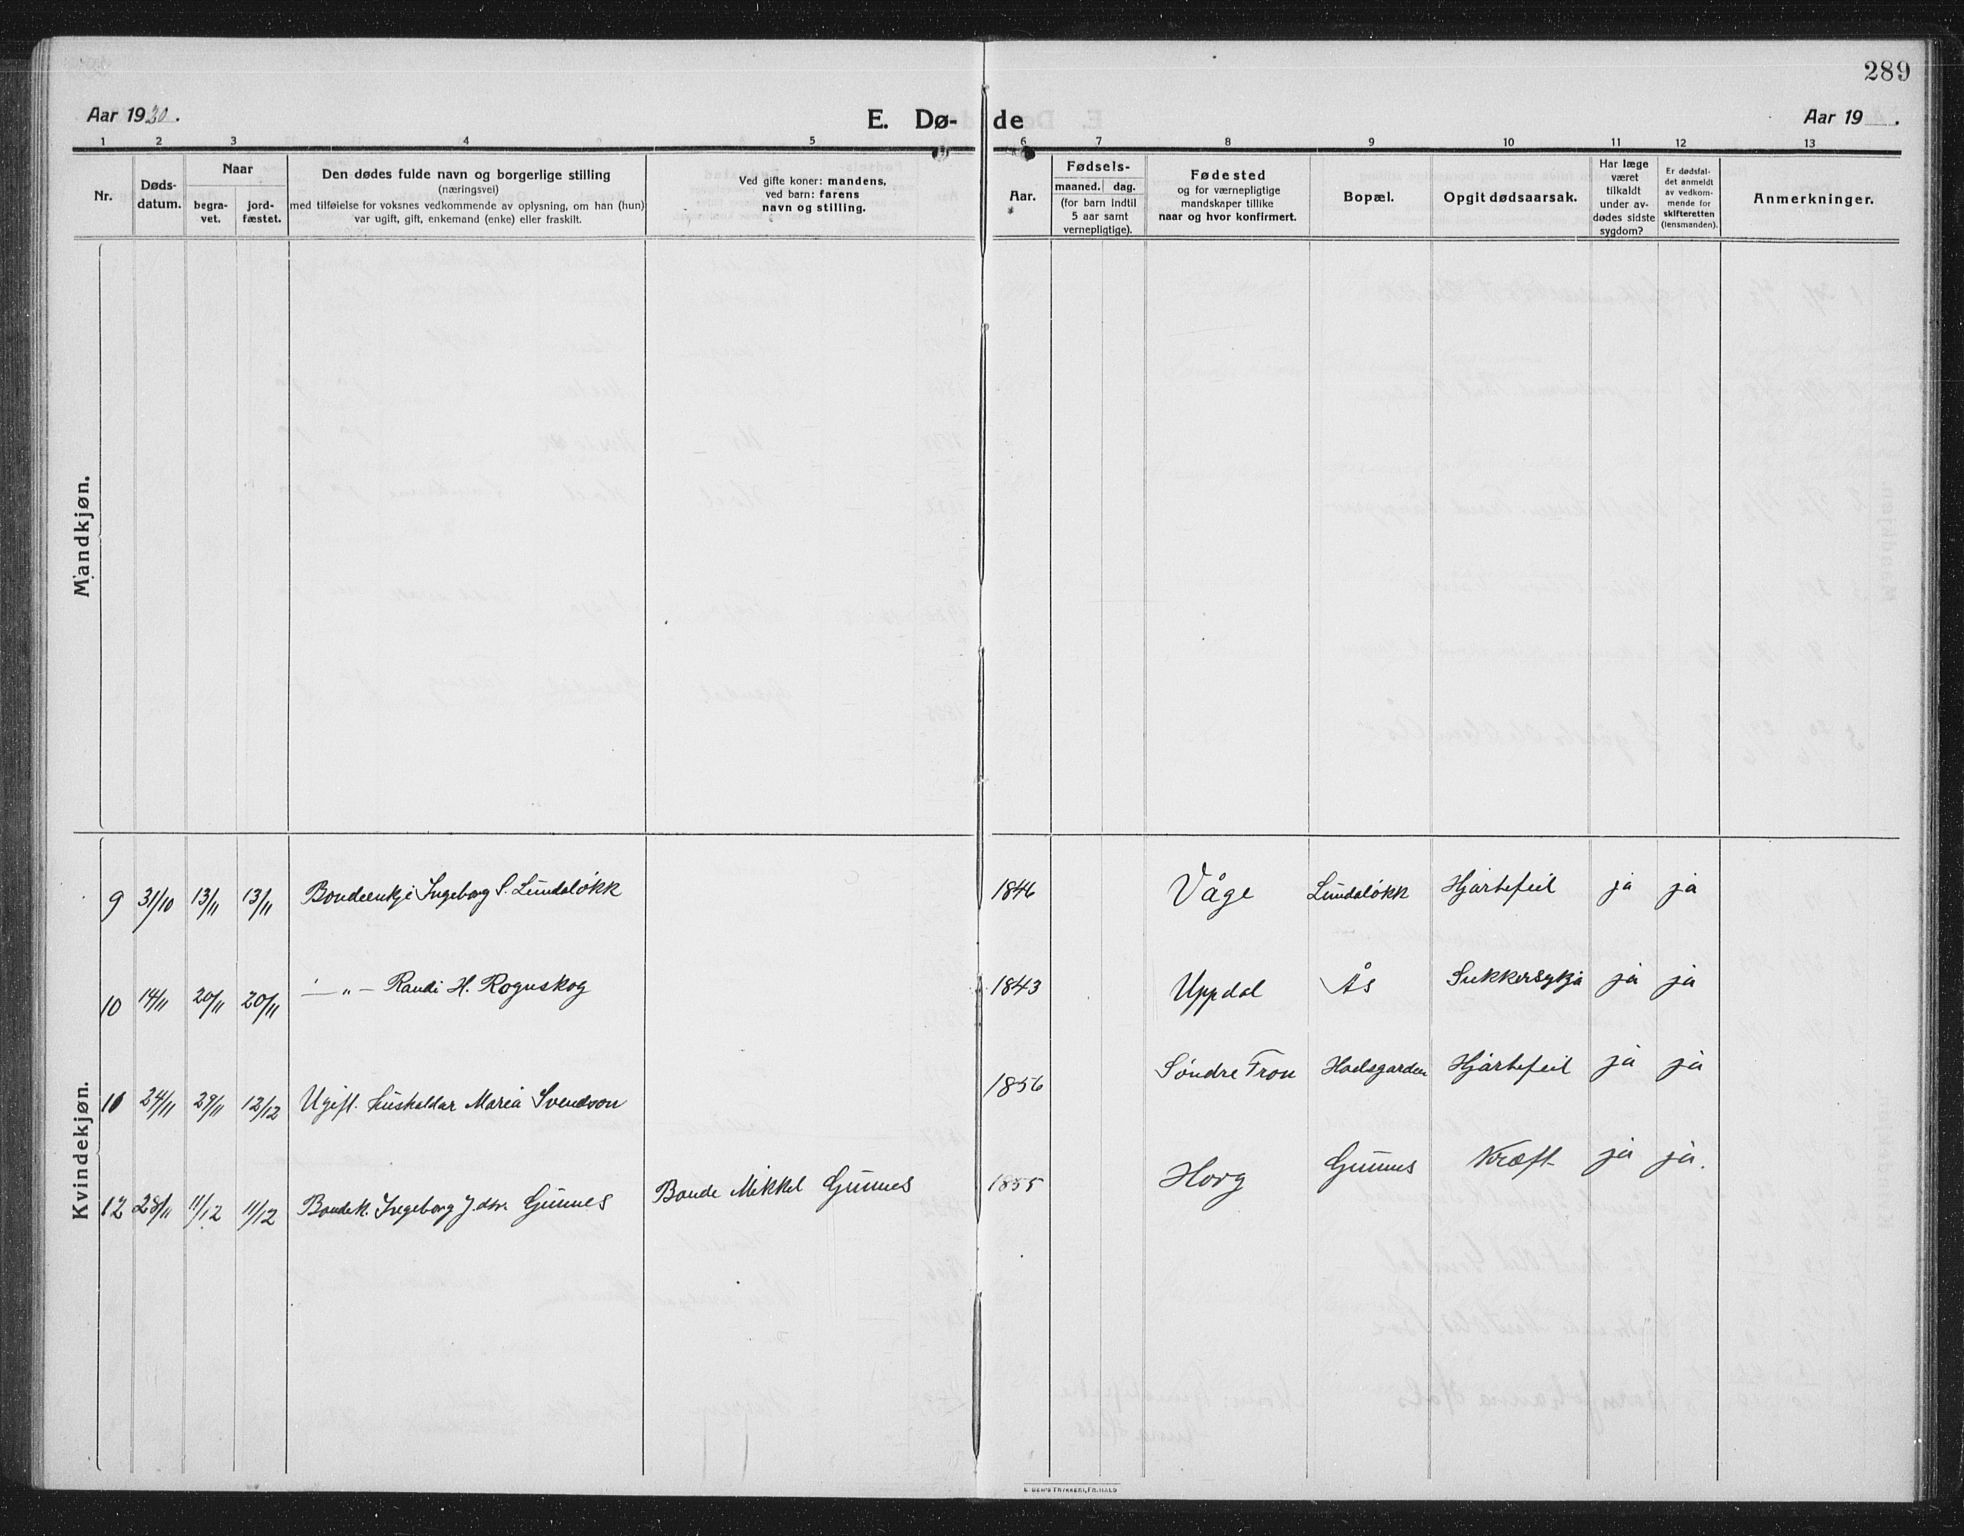 289
Aar 1930.
E. Dø-
de
Aar 19 .
1 2 3 4 5 6 7 8 9 10 11 12 13
Nr.
Døds-
datum.
Naar
begra-
vet.
jord-
fæstet.
Den dødes fulde navn og borgerlige stilling
(næringsvei)
med tilføielse for voksnes vedkommende av oplysning, om han (hun)
var ugift, gift, enkemand (enke) eller fraskilt.
Ved gifte koner: mandens,
ved barn: farens
navn og stilling.
Aar.
Fødsels-
maaned. dag.
(for barn indtil
5 aar samt
vernepligtige).
Fødested
og for værnepligtige
mandskaper tillike
naar og hvor konfirmert.
Bopæl.
Opgit dødsaarsak.
Har læge
været
tilkaldt
under av-
dødes sidste
sygdom?
Er dødsfal-
det anmeldt
av vedkom-
mende for
skifteretten
(lensmanden).
Anmerkninger.
Mandkjøn.
Kvindekjøn.
9 31/10 13/11 13/11 Bondeenkje Ingeborg S. Lundaløkk 1846 Våge Lundaløkk Hjartefeil ja ja
10 14/11 20/11 20/11 — „ — Randi H. Rognskog 1843 Uppdal Ås Sukkersykja ja ja
11 24/11 29/11 12/12 Ugift. hushaldar Maria Svendson 1856 Søndre Fron Hovsgarden Hjartefeil ja ja
12 28/11 11/12 11/12 Bondek. Ingeborg J.dtr. Gunnes Bonde Mikkel Gunnes 1855 Horg Gunnes Kræft ja ja.